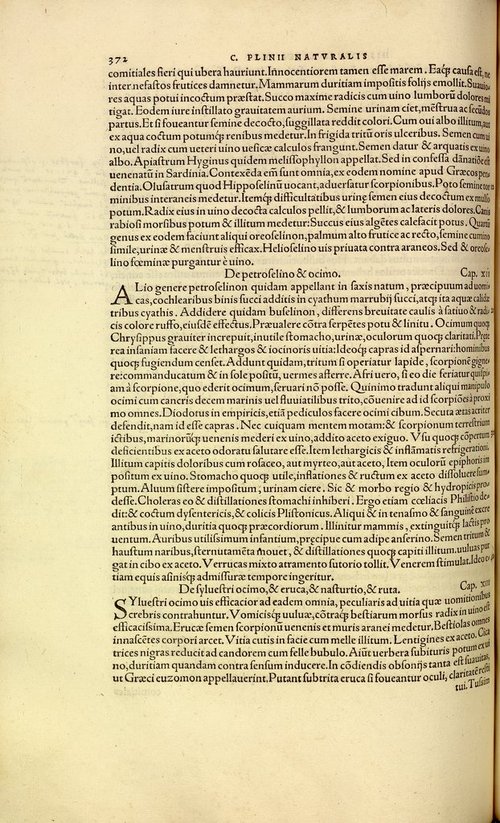 372 C. PLINII NATVRALIS
comitiales fieri qui ubera hauriunt. Innocentiorem tamen esse marem. Eaq́; causa est, ne
inter nefastos frutices damnetur. Mammarum duritiam impositis folijs emollit. Suauio
res aquas potui incoctum præstat. Succo maxime radicis cum uino lumborũ dolores mi
tigat. Eodem iure instillato grauitatem aurium. Semine urinam ciet, mẽstrua ac secũdas
partus. Et si foueantur semine decocto, suggillata reddit colori. Cum oui albo illitum, aut
ex aqua coctum potumq́; renibus medetur. In frigida tritũ oris ulceribus. Semen cum ui
no, uel radix cum ueteri uino uesicæ calculos frangunt. Semen datur & arquatis ex uino
albo. Apiastrum Hyginus quidem melissophyllon appellat. Sed in confessa dãnatiõe est
uenenatũ in Sardinia. Contexẽda em̃ sunt omnia, ex eodem nomine apud Græcos pen
dentia. Olusatrum quod Hipposelinũ uocant, aduersatur scorpionibus. Poto semine tor
minibus interaneis medetur. Itemq́; difficultatibus uring semen eius decoctum ex mulso
potum. Radix eius in uino decocta calculos pellit, & lumborum ac lateris dolores. Canis
rabiosi morsibus potum & illitum medetur: Succus eius algẽtes calefacit potus. Quartũ
genus ex eodem faciunt aliqui oreoselinon, palmum alto frutice ac recto, semine cumino
simile, urinæ & menstruis efficax. Helioselino uis priuata contra araneos. Sed & oreose
lino fœminæ purgantur è uino.
De petroselino & ocimo. Cap. XII
ALio genere petroselinon quidam appellant in saxis natum, præcipuum ad uomi
cas, cochlearibus binis succi additis in cyathum marrubij succi, atq́; ita aquæ calidæ
tribus cyathis. Addidere quidam buselinon, differens breuitate caulis à satiuo & radi
cis colore ruffo, eiusdẽ effectus. Præualere cõtra serpẽtes potu & linitu. Ocimum quoq́;
Chrysippus grauiter increpuit, inutile stomacho, urinæ, oculorum quoq́; claritati. Præte
rea insaniam facere & lethargos & iocinoris uitia: Ideoq́; capras id aspernari: hominibus
quoq́; fugiendum censet. Addunt quidam, tritum si operiatur lapide, scorpionẽ gigne
re: commanducatum & in sole positũ, uermes afferre. Afri uero, si eo die feriatur quispi
am à scorpione, quo ederit ocimum, seruari nõ posse. Quinimo tradunt aliqui manipulo
ocimi cum cancris decem marinis uel fluuiatilibus trito, cõuenire ad id scorpiões à proxi
mo omnes. Diodorus in empiricis, etiã pediculos facere ocimi cibum. Secuta ætas acriter
defendit, nam id esse capras. Nec cuiquam mentem motam: & scorpionum terrestrium
ictibus, marinorũq́; uenenis mederi ex uino, addito aceto exiguo. Vsu quoq́; cõpertum
deficientibus ex aceto odoratu salutare esse. Item lethargicis & inflãmatis refrigerationi.
Illitum capitis doloribus cum rosaceo, aut myrteo, aut aceto, Item oculorũ epiphoris im
positum ex uino. Stomacho quoq́; utile, inflationes & ructum ex aceto dissoluere sum
ptum. Aluum sistere impositum, urinam ciere. Sic & morbo regio & hydropicis pro
desse. Choleras eo & distillationes stomachi inhiberi. Ergo etiam cœliacis Philistio de
dit: & coctum dysentericis, & colicis Plistonicus. Aliqui & in tenasmo & sanguinẽ excre
antibus in uino, duritia quoq́; præcordiorum. Illinitur mammis, extinguitq́; lactis pro
uentum. Auribus utilissimum infantium, præcipue cum adipe anserino. Semen tritum &
haustum naribus, sternutamẽta mouet, & distillationes quoq́; capiti illitum. uuluas pur
gat in cibo ex aceto. Verrucas mixto atramento sutorio tollit. Venerem stimulat. Ideo
tiam equis asinisq́; admissuræ tempore ingeritur.
De sylvestri ocimo, & eruca, & nasturtio, & ruta. Cap. XIII
SYluestri ocimo uis efficacior ad eadem omnia, peculiaris ad uitia quæ uomitionibus
crebris contrahuntur. Vomicisq́; uuluæ, cõtraq́; bestiarum morsus radix in uino est
efficacissima. Erucæ semen scorpionũ uenenis et muris aranei medetur. Bestiolas omnes
innascẽtes corpori arcet. Vitia cutis in facie cum melle illitum. Lentigines ex aceto. Cica
trices nigras reducit ad candorem cum felle bubulo. Aiũt uerbera subituris potum ex ui
no, duritiam quandam contra sensum inducere. In cõdiendis obsonijs tanta est suauitas,
ut Græci euzomon appellauerint. Putant subtrita eruca si foueantur oculi, claritatẽ resti
tui. Tussim